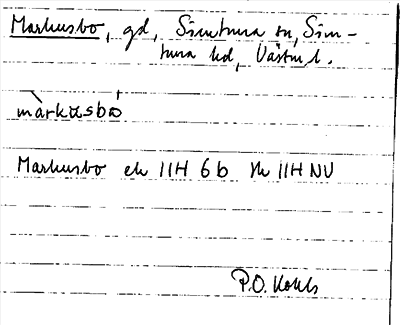 Markusbo, gd, Simtuna sn, Sim-
tuna hd, Västm l.
màrkusbo
Markusbo ek 11H 6b hk 11H NV
P.O.